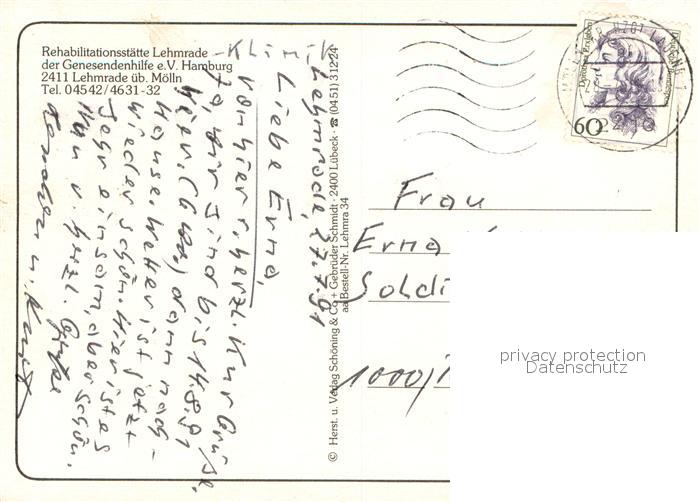 Rehabilitationsstätte Lehmrade
der Genesendenhilfe e.V. Hamburg
2411 Lehmrade üb. Mölln
Tel. 04542/4631-32
-Klinik
Lehmrade, 27.7.91
Liebe Erna,
von hier r. herzl. Kurgrüße.
Ja, wir sind bis 14.8.91
hier, dann nach
Hause. Wetter ist jetzt
wieder schön. Hier ist es
sehr einsam, aber schön.
Nun v. herzl. Grüße
© Herst. u. Verlag Schöning & Co + Gebrüder Schmidt · 2400 Lübeck · ☎ (0451) 31224
aa Bestell-Nr. Lehmra 34
60
Frau
Erna
Soldi
1000/1
privacy protection
Datenschutz